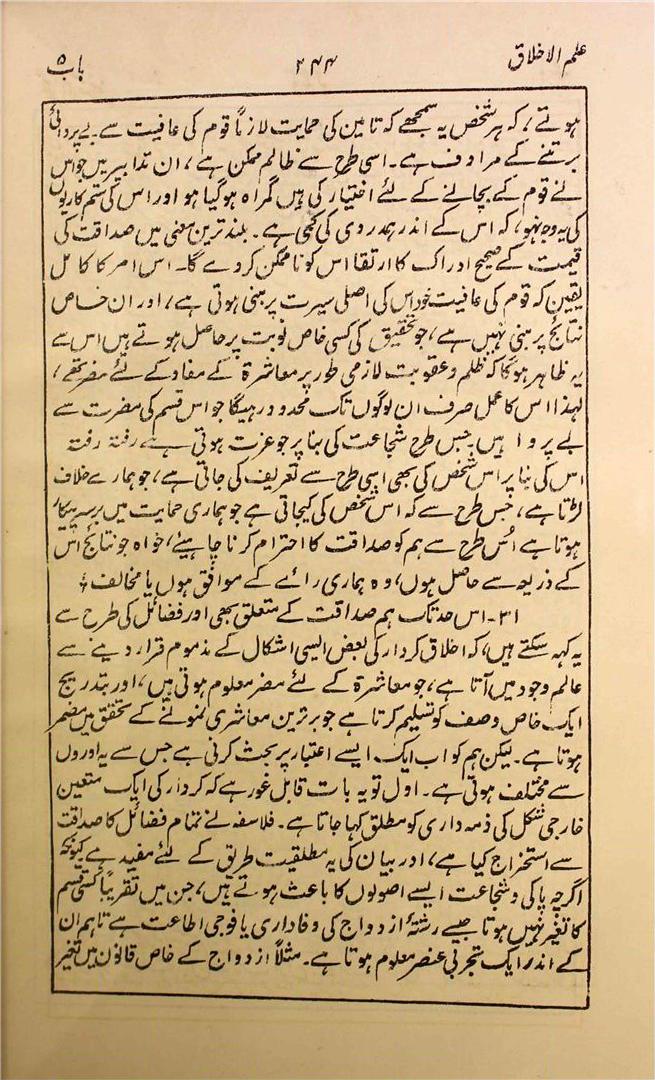 علم الاخلاق ۲۴۴ باب ۵
ہوتے، کہ ہر شخص یہ سمجھے کہ تامین کی حمایت لازماً قوم کی عافیت سے بے پروائی
برتنے کے مرادف ہے۔ اسی طرح سے ظالم ممکن ہے، ان تدابیر میں جو اس
نے قوم کے بچالنے کے لئے اختیار کی ہیں گمراہ ہوگیا ہو اور اس کی ستم کاریوں
کی یہ وجہ نہو، کہ اس کے اندر ہمدردی کی کمی ہے۔ بلند ترین معنی میں صداقت کی
قیمت کے صحیح ادراک کا ارتقا اس کو ناممکن کردے گا۔ اس امر کا کامل
یقین کہ قوم کی عافیت خود اس کی اصلی سیرت پر مبنی ہوتی ہے، اور ان خاص
نتائج پر مبنی نہیں ہے، جو تحقیق کی کسی خاص نوبت پر حاصل ہوتے ہیں اس سے
یہ ظاہر ہوگا کہ ظلم و عقوبت لازمی طور پر معاشرۃ کے مفاد کے لئے مضر تھے،
لہذا اس کا عمل صرف ان لوگوں تک محدود رہیگا جو اس قسم کی مضرت سے
بے پروا ہیں۔ جس طرح شجاعت کی بنا پر جو عزت ہوتی ہے رفتہ رفتہ
اس کی بنا پر اس شخص کی بھی اسی طرح سے تعریف کی جاتی ہے، جو ہمارے خلاف
لڑتا ہے، جس طرح سے کہ اس شخص کی کیجاتی ہے جو ہماری حمایت میں برسر پیکار
ہوتا ہے اُس طرح سے ہم کو صداقت کا احترام کرنا چاہیے، خواہ جو نتائج اس
کے ذریعہ سے حاصل ہوں، وہ ہماری رائے کے موافق ہوں یا مخالف
۳۱۔ اس حد تک ہم صداقت کے متعلق بھی اور فضائل کی طرح سے
یہ کہہ سکتے ہیں، کہ اخلاق کردار کی بعض ایسی اشکال کے مذموم قرار دینے سے
عالم وجود میں آتا ہے، جو معاشرۃ کے لئے مضر معلوم ہوتی ہیں، اور بتدریج
ایک خاص وصف کو تسلیم کرتا ہے جو برترین معاشری نمونے کے تحقق میں مضمر
ہوتا ہے۔ لیکن ہم کو اب ایک ایسے اعتبار پر بحث کرنی ہے جس سے یہ اوروں
سے مختلف ہوتی ہے۔ اول تو یہ بات قابل غور ہے کہ کردار کی ایک متعین
خارجی شکل کی ذمہ داری کو مطلق کہا جاتا ہے۔ فلاسفہ نے تمام فضائل کا صداقت
سے استخراج کیا ہے، اور بیان کی یہ مطلقیت طریق کے لئے مفید ہے کیونکہ
اگرچہ پاکی و شجاعت ایسے اصولوں کا باعث ہوتے ہیں، جن میں تقریباً کسی قسم
کا تغیر نہیں ہوتا جیسے رشتۂ ازدواج کی وفاداری یا فوجی اطاعت ہے تاہم ان
کے اندر ایک تجربی عنصر معلوم ہوتا ہے۔ مثلاً ازدواج کے خاص قانون میں تغیر